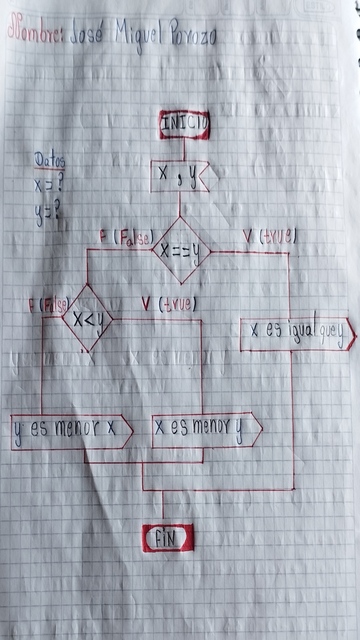 Nombre: José Miguel Porozo
INICIO
Datos
x = ?
y = ?
x, y
F (False)
x==y
V (true)
F (False)
x<y
V (true)
x es igual que y
y es menor x
x es menor y
FIN